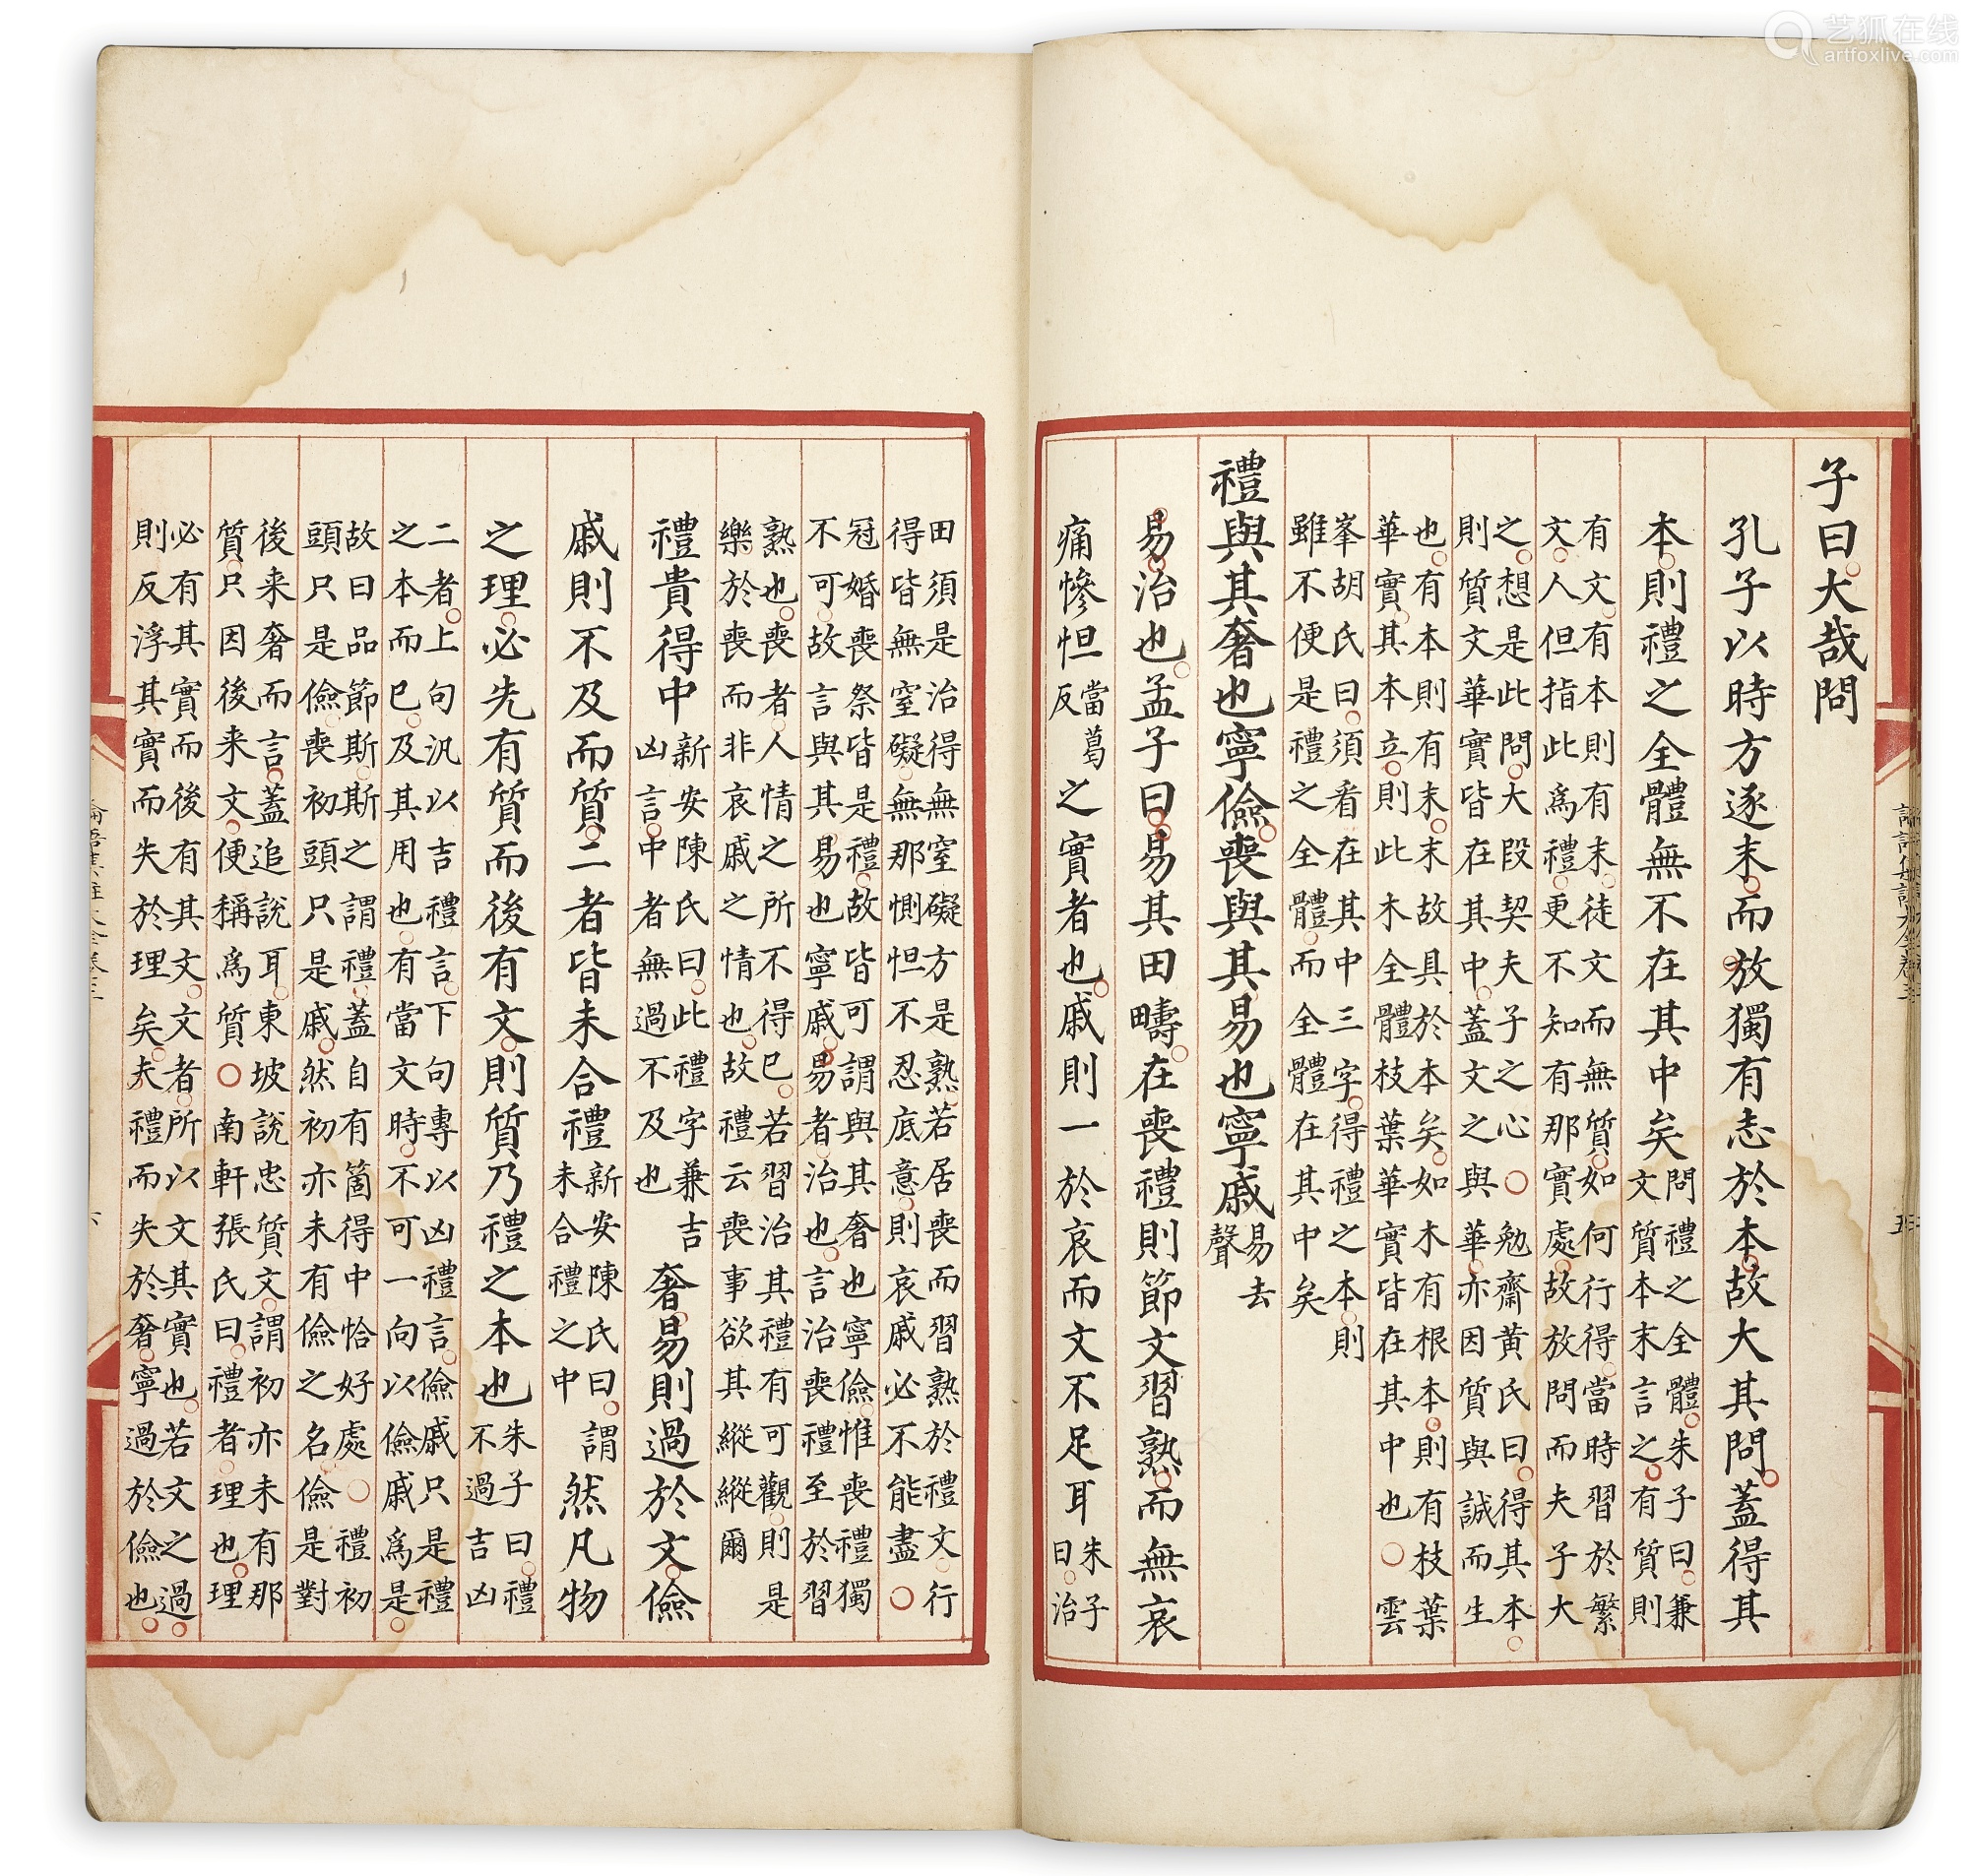 艺狐在线
artfoxlive.com
論語集註大全卷三
五
子曰大哉問
孔子以時方逐末而放獨有志於本故大其問蓋得其
本則禮之全體無不在其中矣
問禮之全體朱子曰兼
文質本末言之有質則
有文有本則有末徒文而無質如何行得當時習於繁
文人但指此爲禮更不知有那實處故放問而夫子大
之想是此問大段契夫子之心○勉齋黃氏曰得其本
則質文華實皆在其中蓋文之與華亦因質與誠而生
也有本則有末末故具於本矣如木有根本則有枝葉
華實其本立則此木全體枝葉華實皆在其中也○雲
峯胡氏曰須看在其中三字得禮之本則
雖不便是禮之全體而全體在其中矣
禮與其奢也寧儉喪與其易也寧戚
易去
聲
易治也孟子曰易其田疇在喪禮則節文習熟而無哀
痛慘怛
當葛
反
之實者也戚則一於哀而文不足耳
朱子
曰治
田須是治得無窒礙方是熟若居喪而習熟於禮文行
得皆無窒礙無那惻怛不忍底意則哀戚必不能盡○
冠婚喪祭皆是禮故皆可謂與其奢也寧儉惟喪禮獨
不可故言與其易也寧戚易者治也言治喪禮至於習
熟也喪者人情之所不得已若習治其禮有可觀則是
樂於喪而非哀戚之情也故禮云喪事欲其縱縱爾
禮貴得中
新安陳氏曰此禮字兼吉
凶言中者無過不及也
奢易則過於文儉
戚則不及而質二者皆未合禮
新安陳氏曰謂
未合禮之中
然凡物
之理必先有質而後有文則質乃禮之本也
朱子曰禮
不過吉凶
二者上句汎以吉禮言下句專以凶禮言儉戚只是禮
之本而已及其用也有當文時不可一向以儉戚爲是
故曰品節斯斯之謂禮蓋自有箇得中恰好處○禮初
頭只是儉喪初頭只是戚然初亦未有儉之名儉是對
後来奢而言蓋追說耳東坡說忠質文謂初亦未有那
質只因後来文便稱爲質○南軒張氏曰禮者理也理
必有其實而後有其文文者所以文其實也若文之過
則反浮其實而失於理矣夫禮而失於奢寧過於儉也
論語集註大全卷三
六